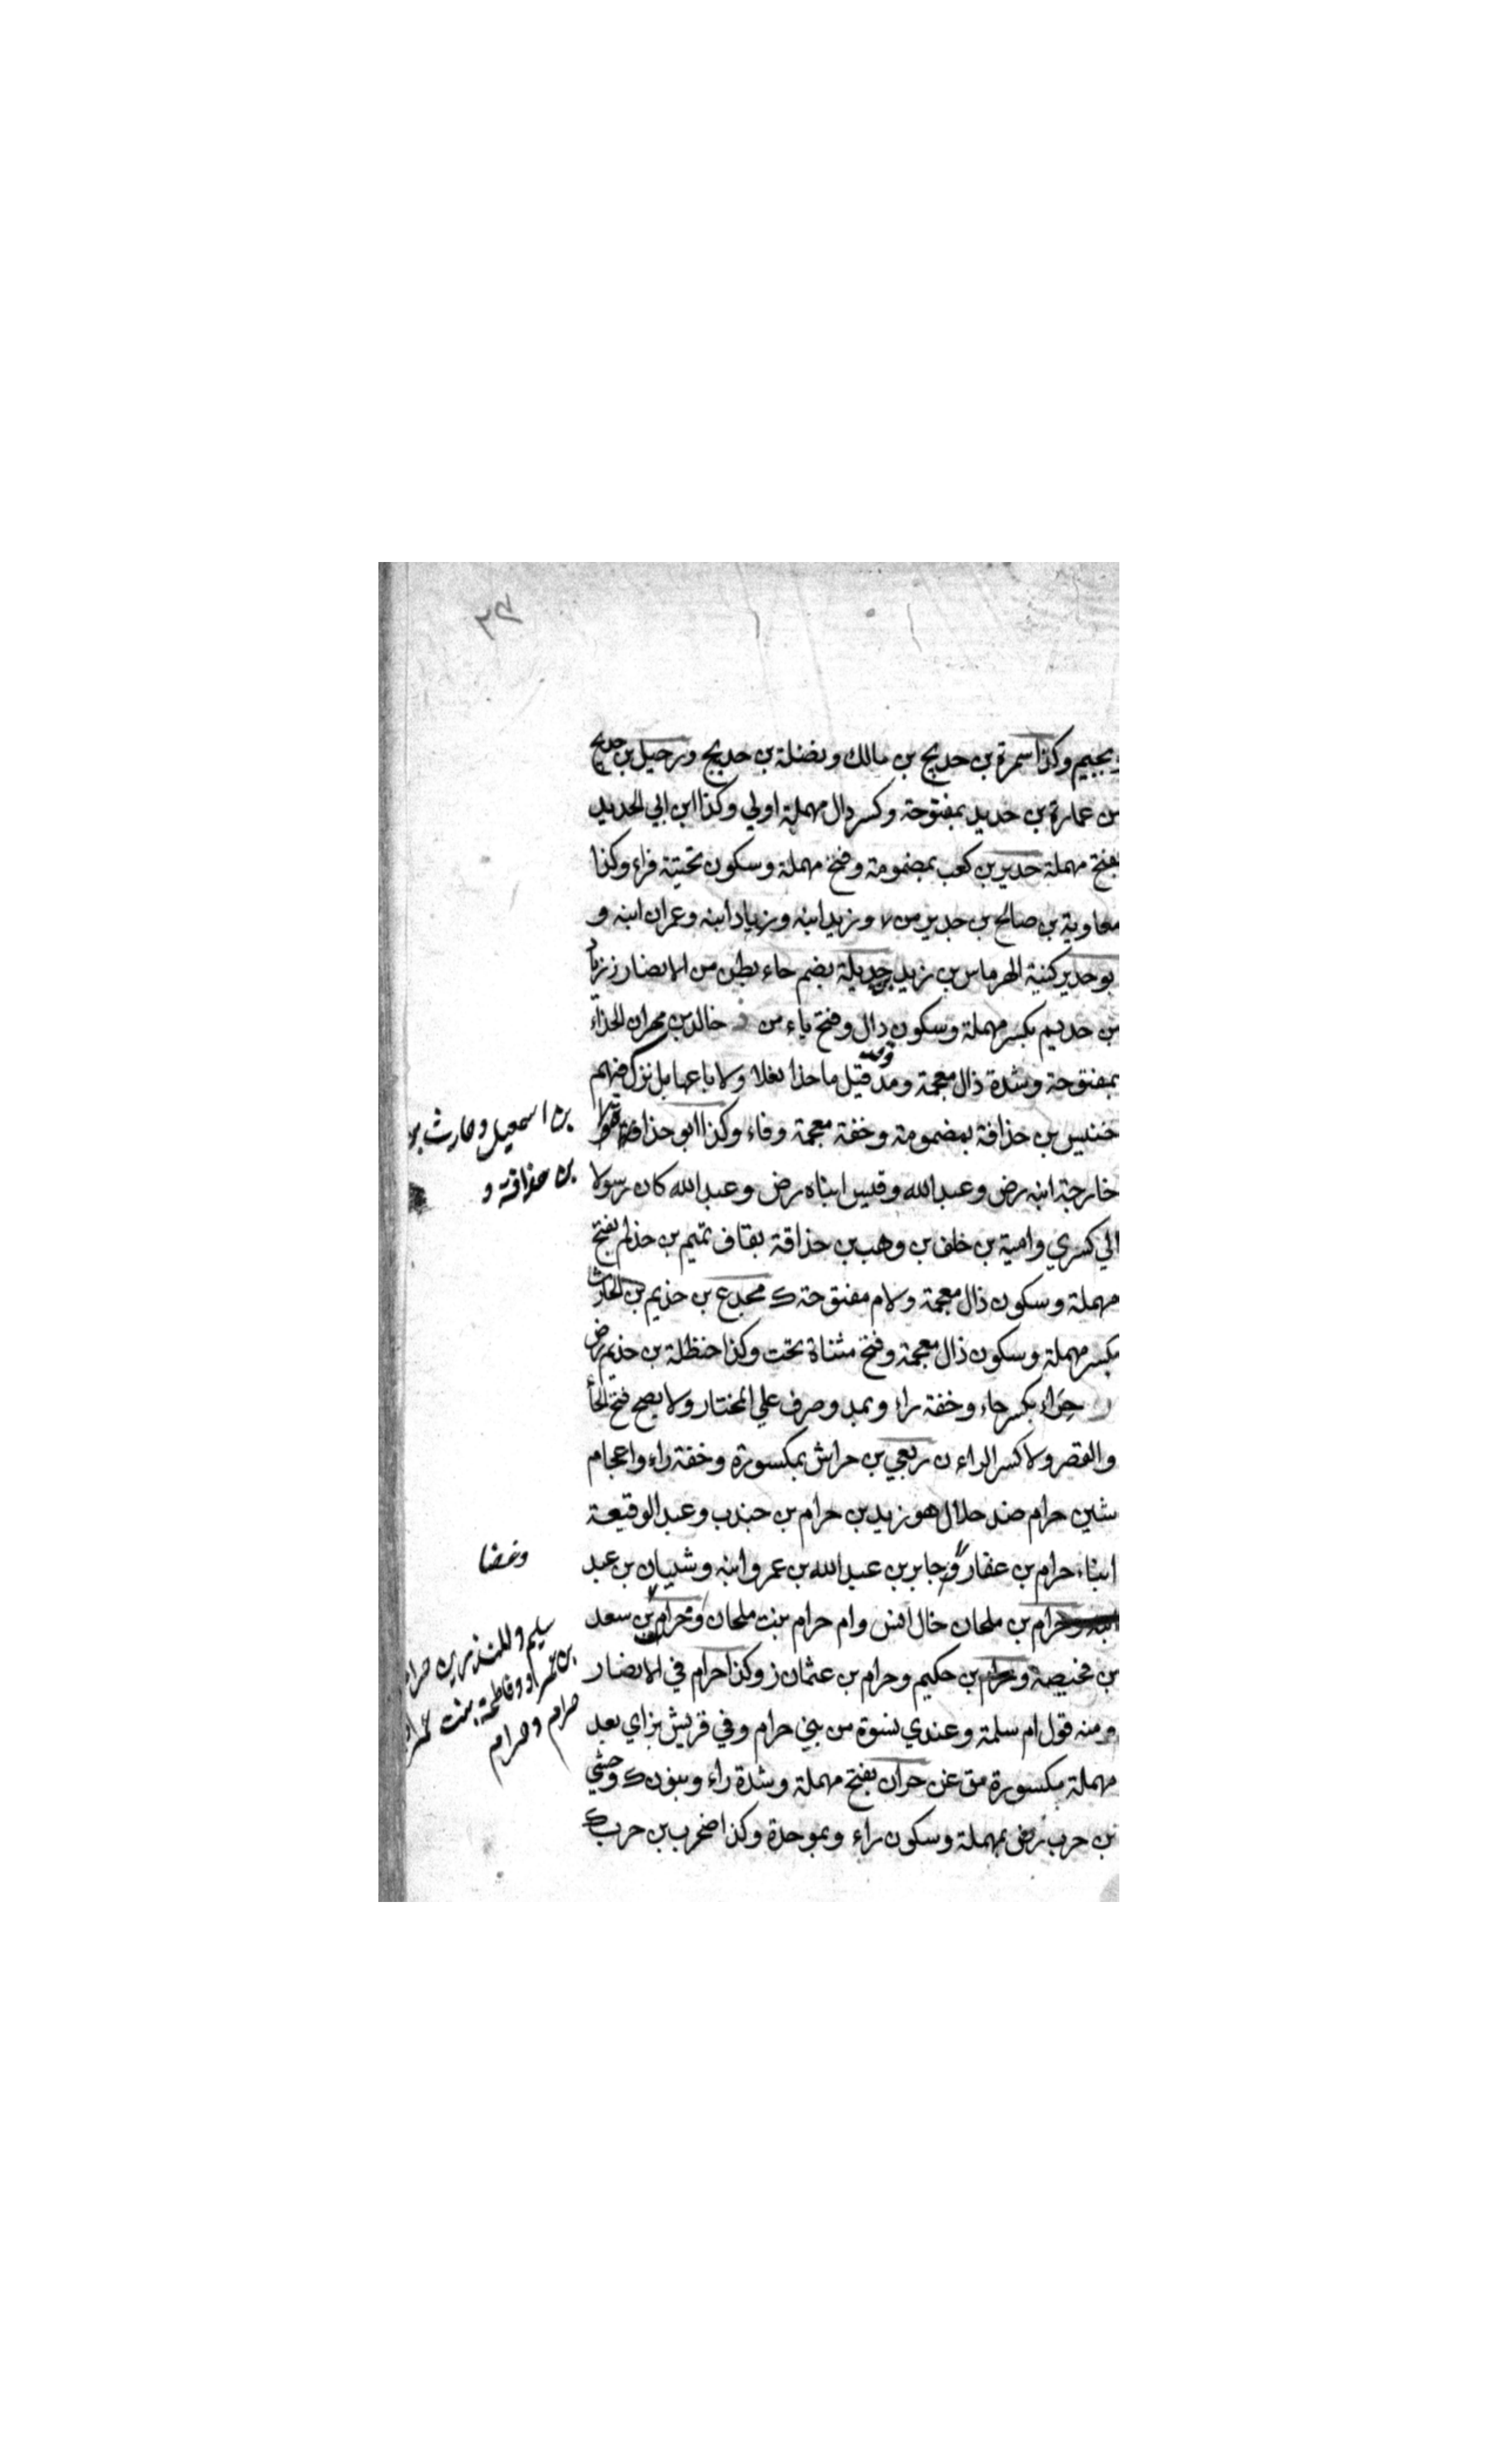 وبجيم وكذا سمرة بن حديج بن مالك ونضلة بن حديج ورحيل بن حديج
بن عمارة بن حديد بمفتوحة وكسر دال مهملة اولي وكذا ابن ابي الحديد
بفتح مهملة حدير بن كعب بمضمومة وفتح مهملة وسكون تحتية فراء وكذا
معاوية بن صالح بن حدير من وزيد ابنه وزياد ابنه وعمران ابنه و
بوحدير كنية الهرماس بن زيد حديلة بضم حاء بطن من الانصار ز زياد
بن حديم بكسر مهملة وسكون دال وفتح ياء من خالد بن مهران الحذاء
بمفتوحة وشدة ذال معجمة ومد قيل ما حذا نعلا ولا باعها بل نزل فيهم
خنيس بن حذافة بمضمومة وخفة معجمة وفاء وكذا ابو حذافة
بن اسمعيل وحارث بن
بن حذاقة و
خارجة ابنه رض وعبد الله وقيس ابناه رض وعبد الله كان رسولا
الي كسري وامية بن خلف بن وهب بن حذاقة بقاف تميم بن حذلم بفتح
مهملة وسكون ذال معجمة ولام مفتوحة ك مجدع بن حذيم بن الحارث
بكسر مهملة وسكون ذال معجمة وفتح مثناة تحت وكذا حنظلة بن حذيم رض
حراء بكسر حاء وخفة راء وبمد وصرف علي المختار ولا يصح فتح الحاء
والقصر ولا كسر الراء ن ربعي بن حراش بمكسورة وخفة راء واعجام
شين حرام ضد حلال هو زيد بن حرام بن جندب وعبد الوقيعة
ابناء حرام بن عفار و جابر بن عبد الله بن عمرو ابنه وشيبان بن عبد
حرام بن ملحان خال انس وام حرام بنت ملحان وحرام بن سعد
سليم والمنذر بن حرام
بن وفاطمة بنت
حرام وحرام
بن محيصة وحرام بن حكيم وحرام بن عثمان ز وكذا حرام في الانصار
ومنه قول ام سلمة وعندي نسوة من بني حرام وفي قريش بزاي بعد
مهملة مكسورة مق عن حران بفتح مهملة وشدة راء وبنون ك وحشي
بن حرب رض بمهملة وسكون راء وبموحدة وكذا صخر بن حرب ك